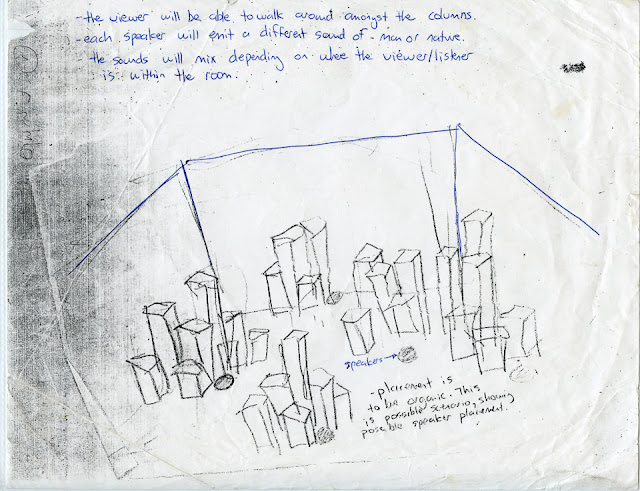 - the viewer will be able to walk around amongst the columns.
- each speaker will emit a different sound of - man or nature.
- the sounds will mix depending on where the viewer/listener
is within the room.
speaker
- placement is
to be organic. This
is possible scenario, showing
possible speaker placement.